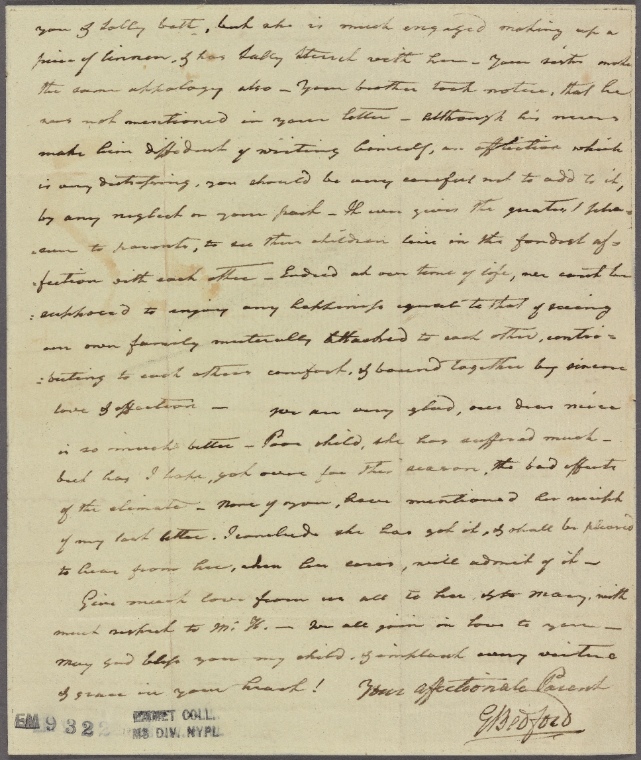 you & Sally both, but she is much engaged making up a
piece of linnen, & has Sally with her - Your sister make
the same appology also - Your brother took notice, that he
was not mentioned in your letter - Although his nerves
make him diffident of writing himself, an affliction which
is very distressing, you should be very careful not to add to it,
by any neglect on your part - It ever gives the greatest plea=
sure to parents, to see their children live in the fondest af=
:fection with each other - Indeed at our time of life, we cant be
:supposed to enjoy any happiness equal to that of seeing
our own family mutually attached to each other, contri=
:buting to each others comfort, & bound together by sincere
love & affection - We are very glad, our dear niece
is so much better - Poor child, she has suffered much -
but has I hope, got over for this season, the bad effects
of the climate - None of you, have mentioned her receipt
of my last letter. I conclude she has got it, & shall be pleased
to hear from her, when her cares, will admit of it -
Give much love from us all to her, & to Mary, with
much respect to Mr. H. - We all join in love to you -
may God bless you my child, & implant every virtue
& grace in your heart! Your affectionate Parent
GBedford
EM 9322
EMMET COLL.
MS DIV. NYPL